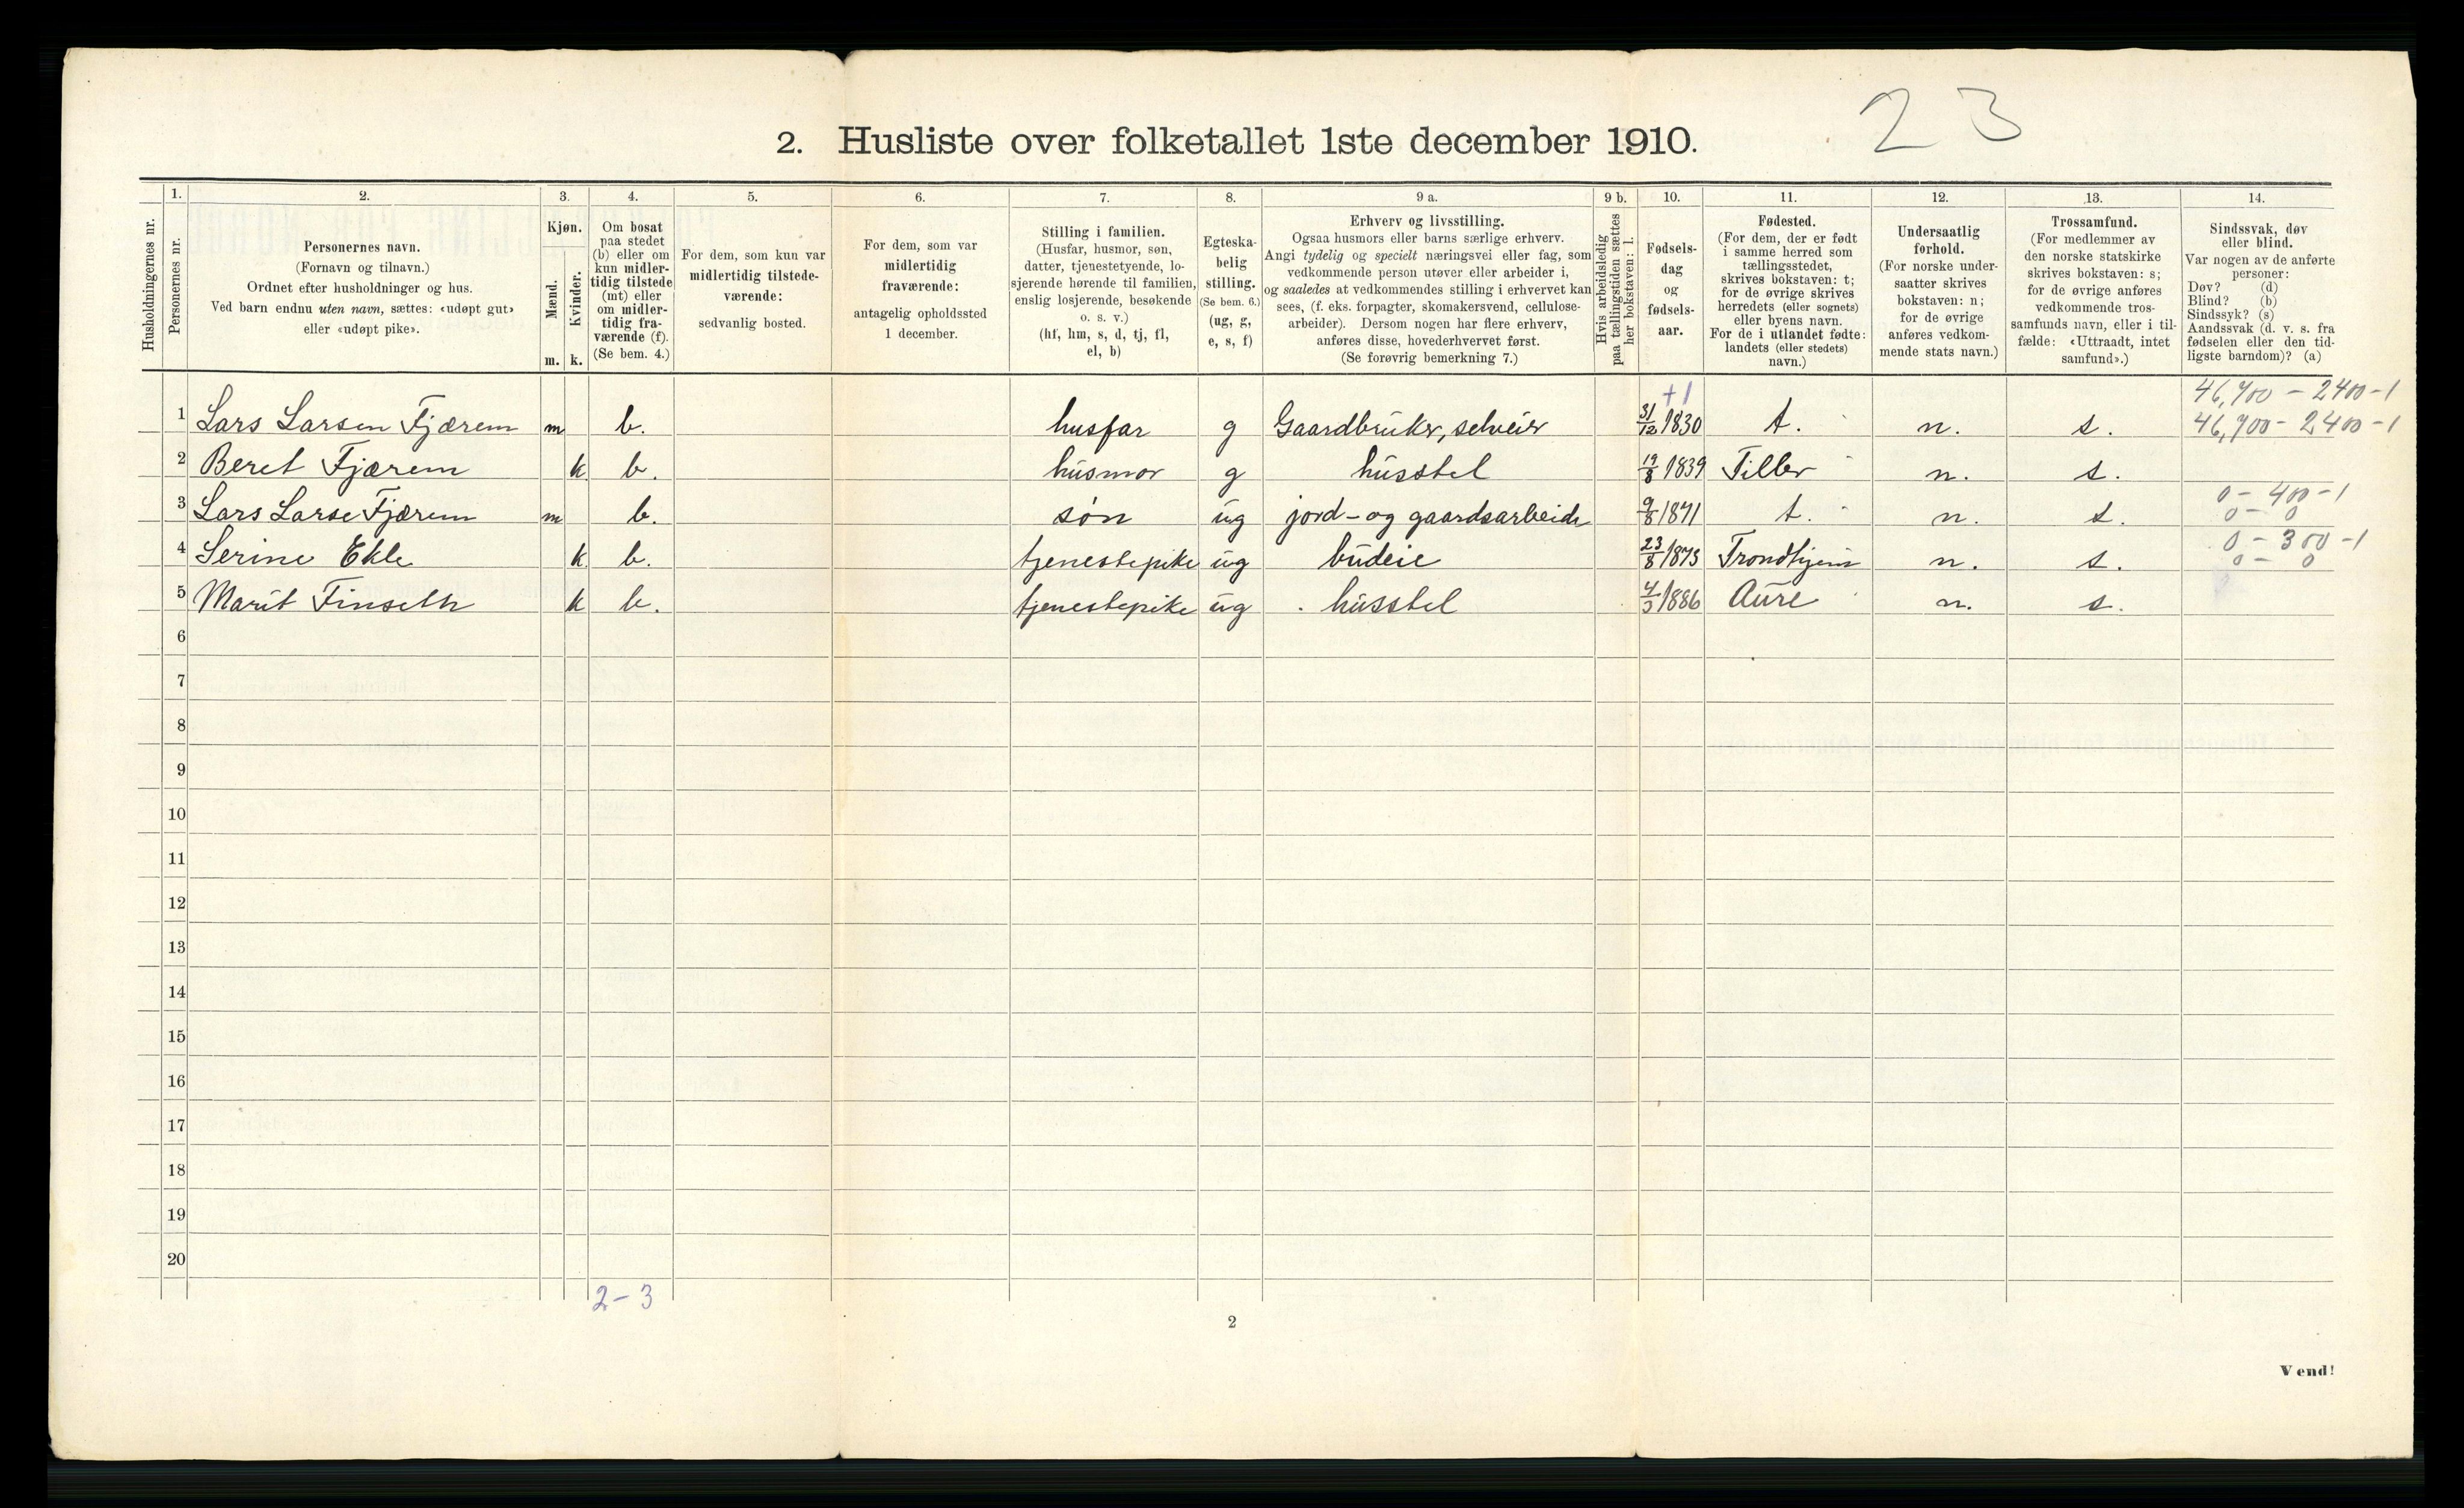 23
2. Husliste over folketallet 1ste december 1910.
Husholdningernes nr.
1. Personernes nr.
2. Personernes navn.
(Fornavn og tilnavn.)
Ordnet efter husholdninger og hus.
Ved barn endnu uten navn, sættes: «udøpt gut»
eller «udøpt pike».
3. Kjøn.
Mænd. m.
Kvinder. k.
4. Om bosat
paa stedet
(b) eller om
kun midler-
tidig tilstede
(mt) eller
om midler-
tidig fra-
værende (f).
(Se bem. 4.)
5. For dem, som kun var
midlertidig tilstede-
værende:
sedvanlig bosted.
6. For dem, som var
midlertidig
fraværende:
antagelig opholdssted
1 december.
7. Stilling i familien.
(Husfar, husmor, søn,
datter, tjenestetyende, lo-
sjerende hørende til familien,
enslig losjerende, besøkende
o. s. v.)
(hf, hm, s, d, tj, fl,
el, b)
8. Egteska-
belig
stilling.
(Se bem. 6.)
(ug, g,
e, s, f)
9 a. Erhverv og livsstilling.
Ogsaa husmors eller barns særlige erhverv.
Angi tydelig og specielt næringsvei eller fag, som
vedkommende person utøver eller arbeider i,
og saaledes at vedkommendes stilling i erhvervet kan
sees, (f. eks. forpagter, skomakersvend, cellulose-
arbeider). Dersom nogen har flere erhverv,
anføres disse, hovederhvervet først.
(Se forøvrig bemerkning 7.)
9 b. Hvis arbeidsledig
paa tællingstiden sættes
her bokstaven: l.
10. Fødsels-
dag
og
fødsels-
aar.
11. Fødested.
(For dem, der er født
i samme herred som
tællingsstedet,
skrives bokstaven: t;
for de øvrige skrives
herredets (eller sognets)
eller byens navn.
For de i utlandet fødte:
landets (eller stedets)
navn.)
12. Undersaatlig
forhold.
(For norske under-
saatter skrives
bokstaven: n;
for de øvrige
anføres vedkom-
mende stats navn.)
13. Trossamfund.
(For medlemmer av
den norske statskirke
skrives bokstaven: s;
for de øvrige anføres
vedkommende tros-
samfunds navn, eller i til-
fælde: «Uttraadt, intet
samfund».)
14. Sindssvak, døv
eller blind.
Var nogen av de anførte
personer:
Døv? (d)
Blind? (b)
Sindssyk? (s)
Aandssvak (d. v. s. fra
fødselen eller den tid-
ligste barndom)? (a)
+1 46,700 - 2400-1
1 Lars Larsen Fjærem m b. husfar g Gaardbruker, selveier 31/12 1830 t. n. s. 46,700 - 2400-1
2 Beret Fjærem k b. husmor g husstel 19/8 1839 Tiller n. s.
0 - 400-1
3 Lars Larse Fjærem m b. søn ug jord- og gaardsarbeide 9/8 1871 t. n. s. 0 - 0
0 - 300-1
4 Serine Ekle k b. tjenestepike ug budeie 23/8 1873 Trondhjem n. s. 0 - 0
5 Marit Finseth k b. tjenestepike ug husstel 4/3 1886 Aure n. s.
6
7
8
9
10
11
12
13
14
15
16
17
18
19
20
2-3
2
Vend!